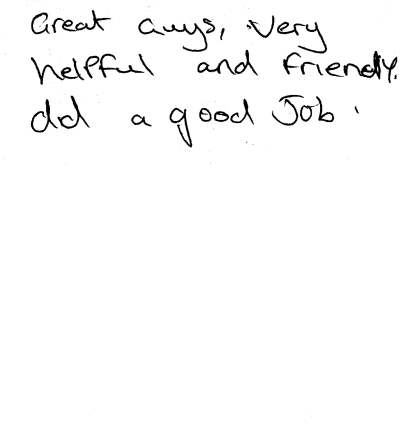 Great Guys, Very
helpful and friendly.
did a good Job.